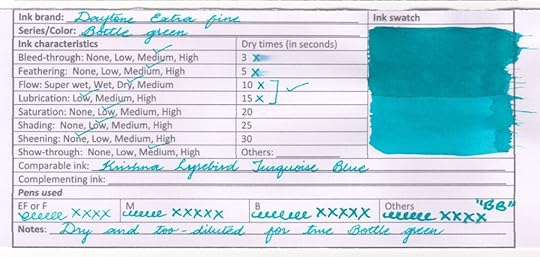 Ink brand: Daytone Extra fine Ink swatch
Series/Color: Bottle green
Ink characteristics Dry times (in seconds)
Bleed-through: None, Low, Medium, High 3 x
Feathering: None, Low, Medium, High 5 x
Flow: Super wet, Wet, Dry, Medium 10 x
Lubrication: Low, Medium, High 15 x
Saturation: None, Low, Medium, High 20
Shading: None, Low, Medium, High 25
Sheening: None, Low, Medium, High 30
Show-through: None, Low, Medium, High Others:
Comparable ink: Krishna Lyrebird Turquoise Blue
Complementing ink:
Pens used
EF or F M B Others "BB"
xxxx xxxxx xxxxx xxxx
Notes: Dry and too-diluted for true Bottle green